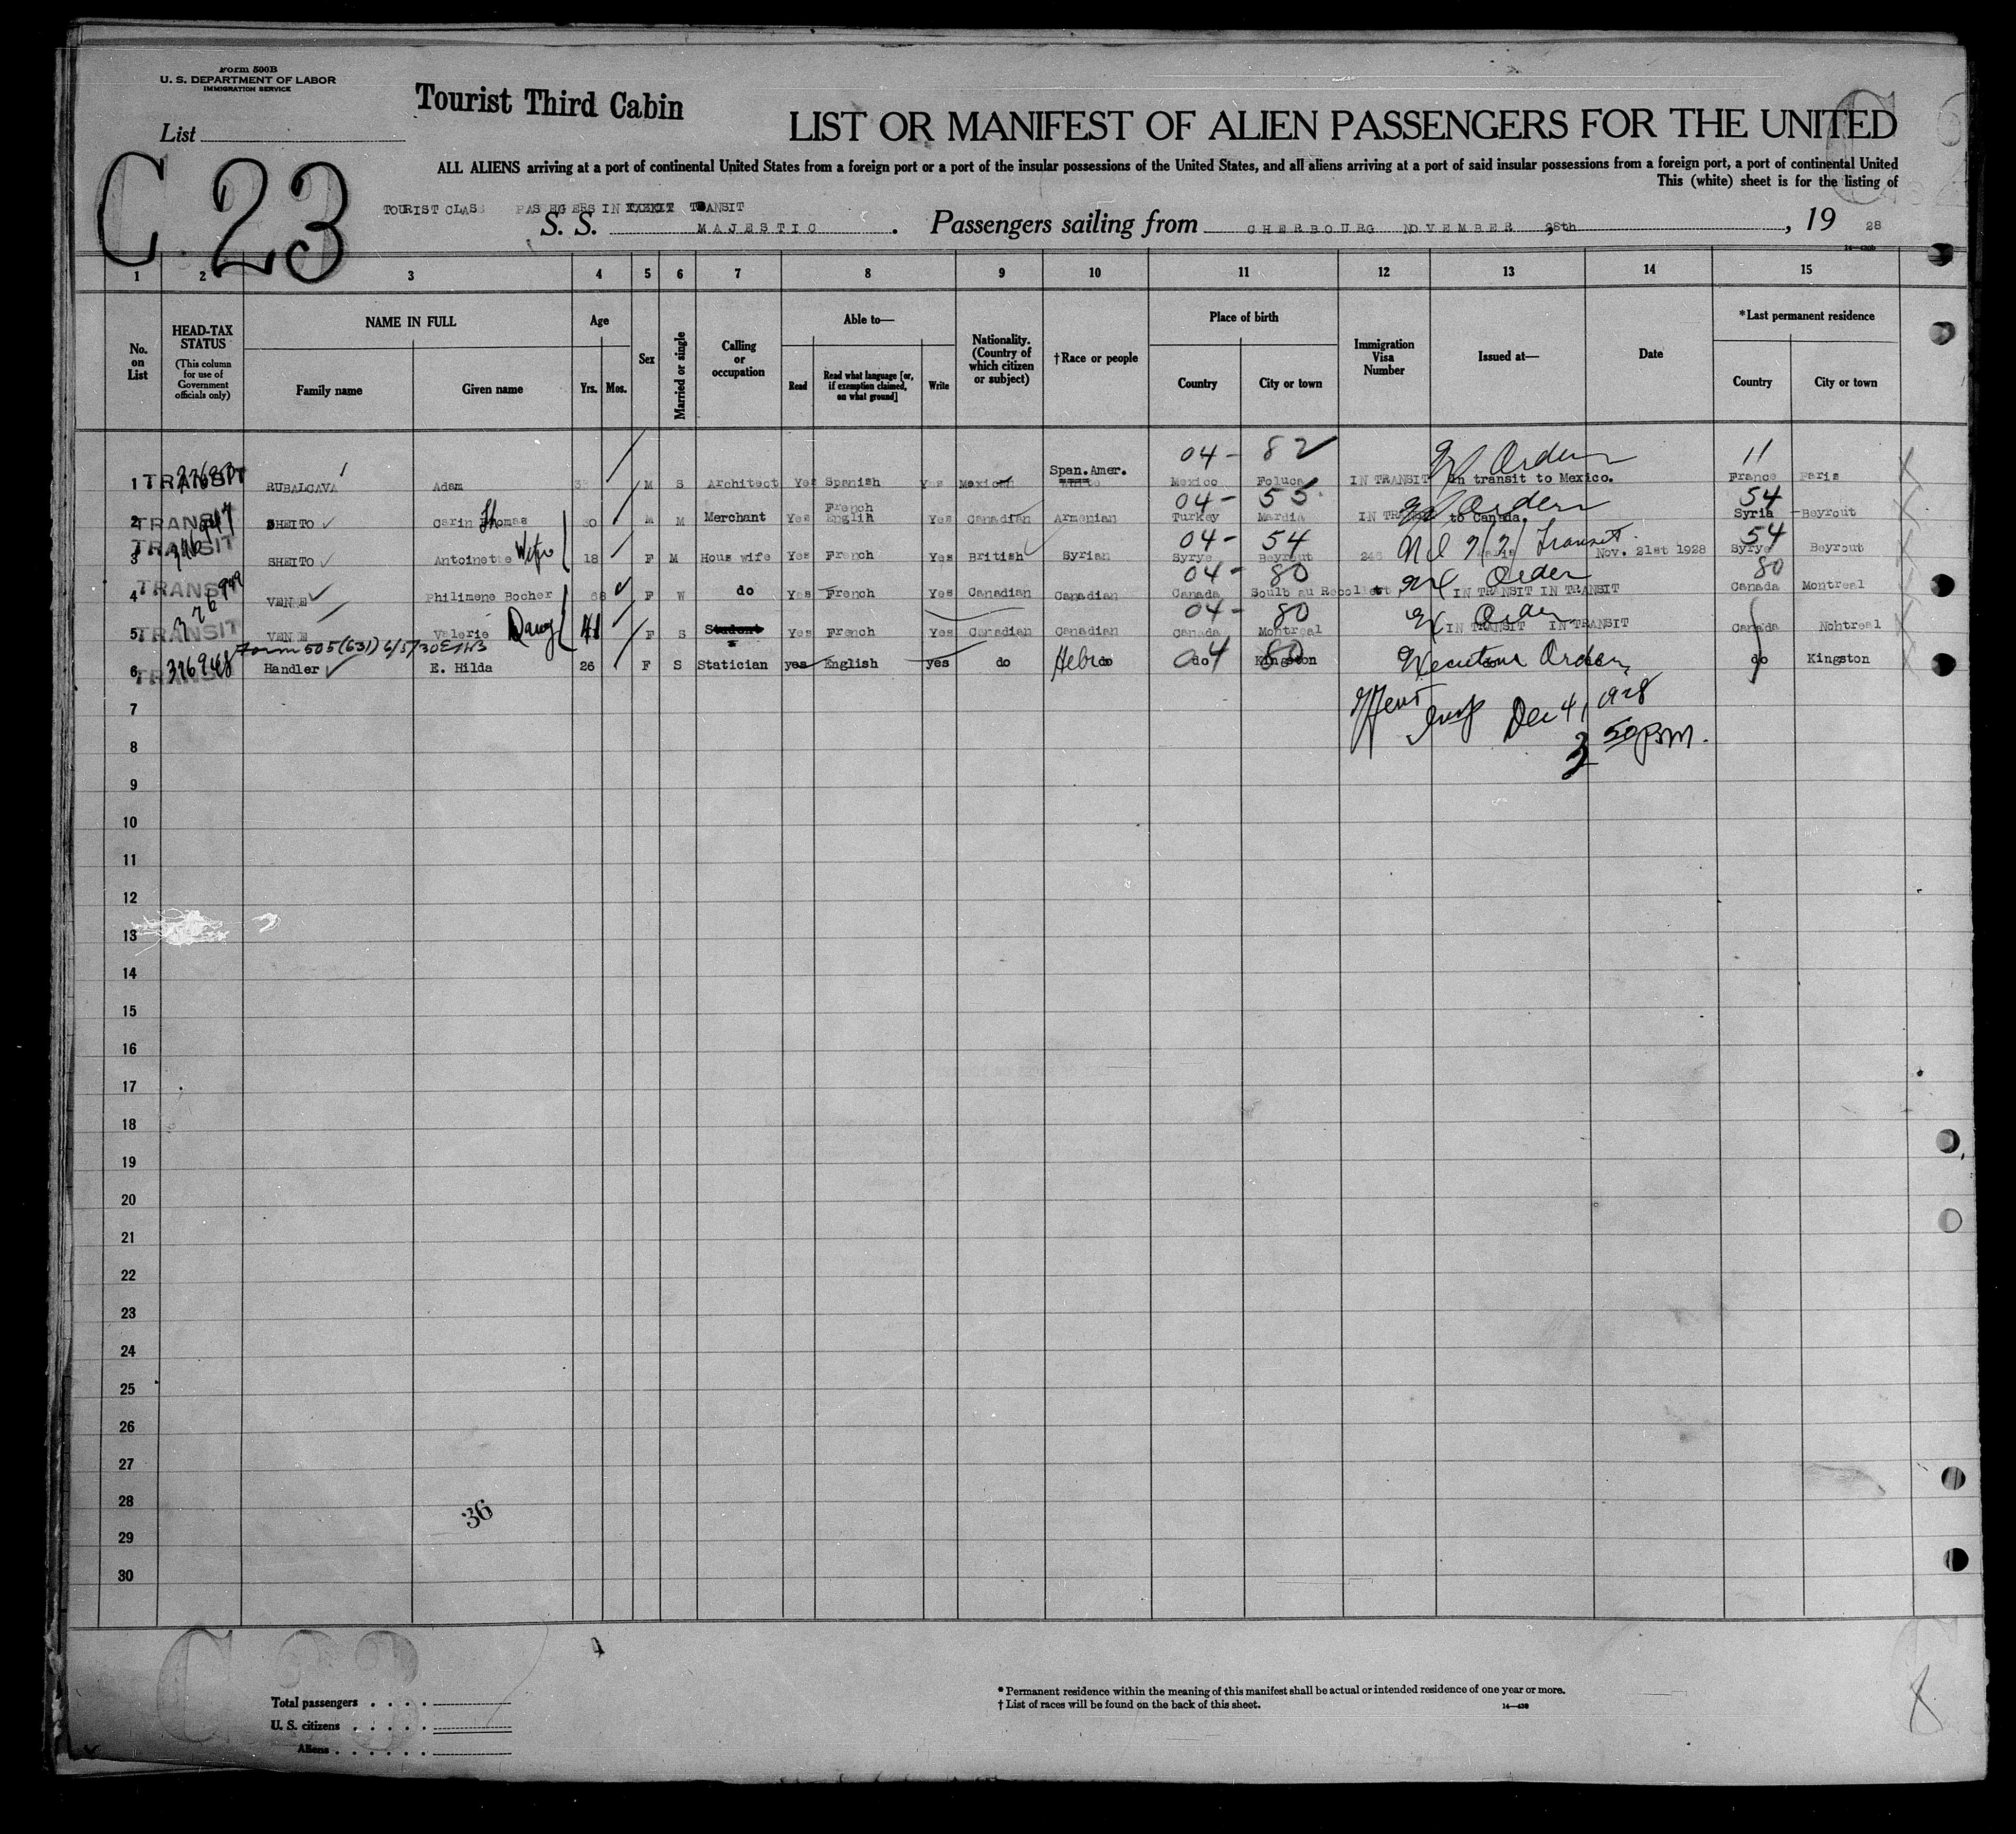 Form 500B
U. S. DEPARTMENT OF LABOR
IMMIGRATION SERVICE
Tourist Third Cabin
List
LIST OR MANIFEST OF ALIEN PASSENGERS FOR THE UNITED
C 23
ALL ALIENS arriving at a port of continental United States from a foreign port or a port of the insular possessions of the United States, and all aliens arriving at a port of said insular possessions from a foreign port, a port of continental United
This (white) sheet is for the listing of
TOURIST CLASS PASSENGERS IN TRANSIT
S. S. MAJESTIC . Passengers sailing from CHERBOURG NOVEMBER 28th , 19 28
1 2 3 4 5 6 7 8 9 10 11 12 13 14 15
No. on List
HEAD-TAX STATUS
(This column for use of Government officials only)
NAME IN FULL
Family name Given name
Age
Yrs. Mos.
Sex
Married or single
Calling or occupation
Able to—
Read Read what language [or, if exemption claimed, on what ground] Write
Nationality. (Country of which citizen or subject)
†Race or people
Place of birth
Country City or town
Immigration Visa Number
Issued at—
Date
*Last permanent residence
Country City or town
04 - 82 Ex Order 11
1 TRANSIT RUBALCAVA Adam M S Architect Yes Spanish Yes Mexican Span. Amer. Mexico Foluca IN TRANSIT In transit to Mexico. France Paris
04 - 55 Ex Order 54
2 TRANSIT SHEITO Carin Thomas 30 M M Merchant Yes French English Yes Canadian Armenian Turkey Mardin IN TRANSIT to Canada Syria Beyrout
04 - 54 Transit 54
3 TRANSIT SHEITO Antoinette Wife 18 F M Hous wife Yes French Yes British Syrian Syrye Beyrout Nov. 21st 1928 Syrye Beyrout
04 - 80 Ex Order 80
4 TRANSIT VENNE Philimene Bocher 68 F W do Yes French Yes Canadian Canadian Canada Soulb au Recollet IN TRANSIT IN TRANSIT Canada Montreal
04 - 80 Ex Order
5 TRANSIT VENNE Valerie Daug 41 F S Student Yes French Yes Canadian Canadian Canada Montreal IN TRANSIT IN TRANSIT Canada Nohtreal
Form 505 (631) 6/5/30
6 TRANSIT 376948 Handler E. Hilda 26 F S Statician yes English yes do Hebr do 04 do 80 Kingston Executive Order do Kingston
7
Dec 4, 1928
8
3 50 P.M.
9
10
11
12
13
14
15
16
17
18
19
20
21
22
23
24
25
26
27
28
36
29
30
Total passengers . . . .
U. S. citizens . . . . .
Aliens . . . . . .
* Permanent residence within the meaning of this manifest shall be actual or intended residence of one year or more.
† List of races will be found on the back of this sheet.
14—430
8